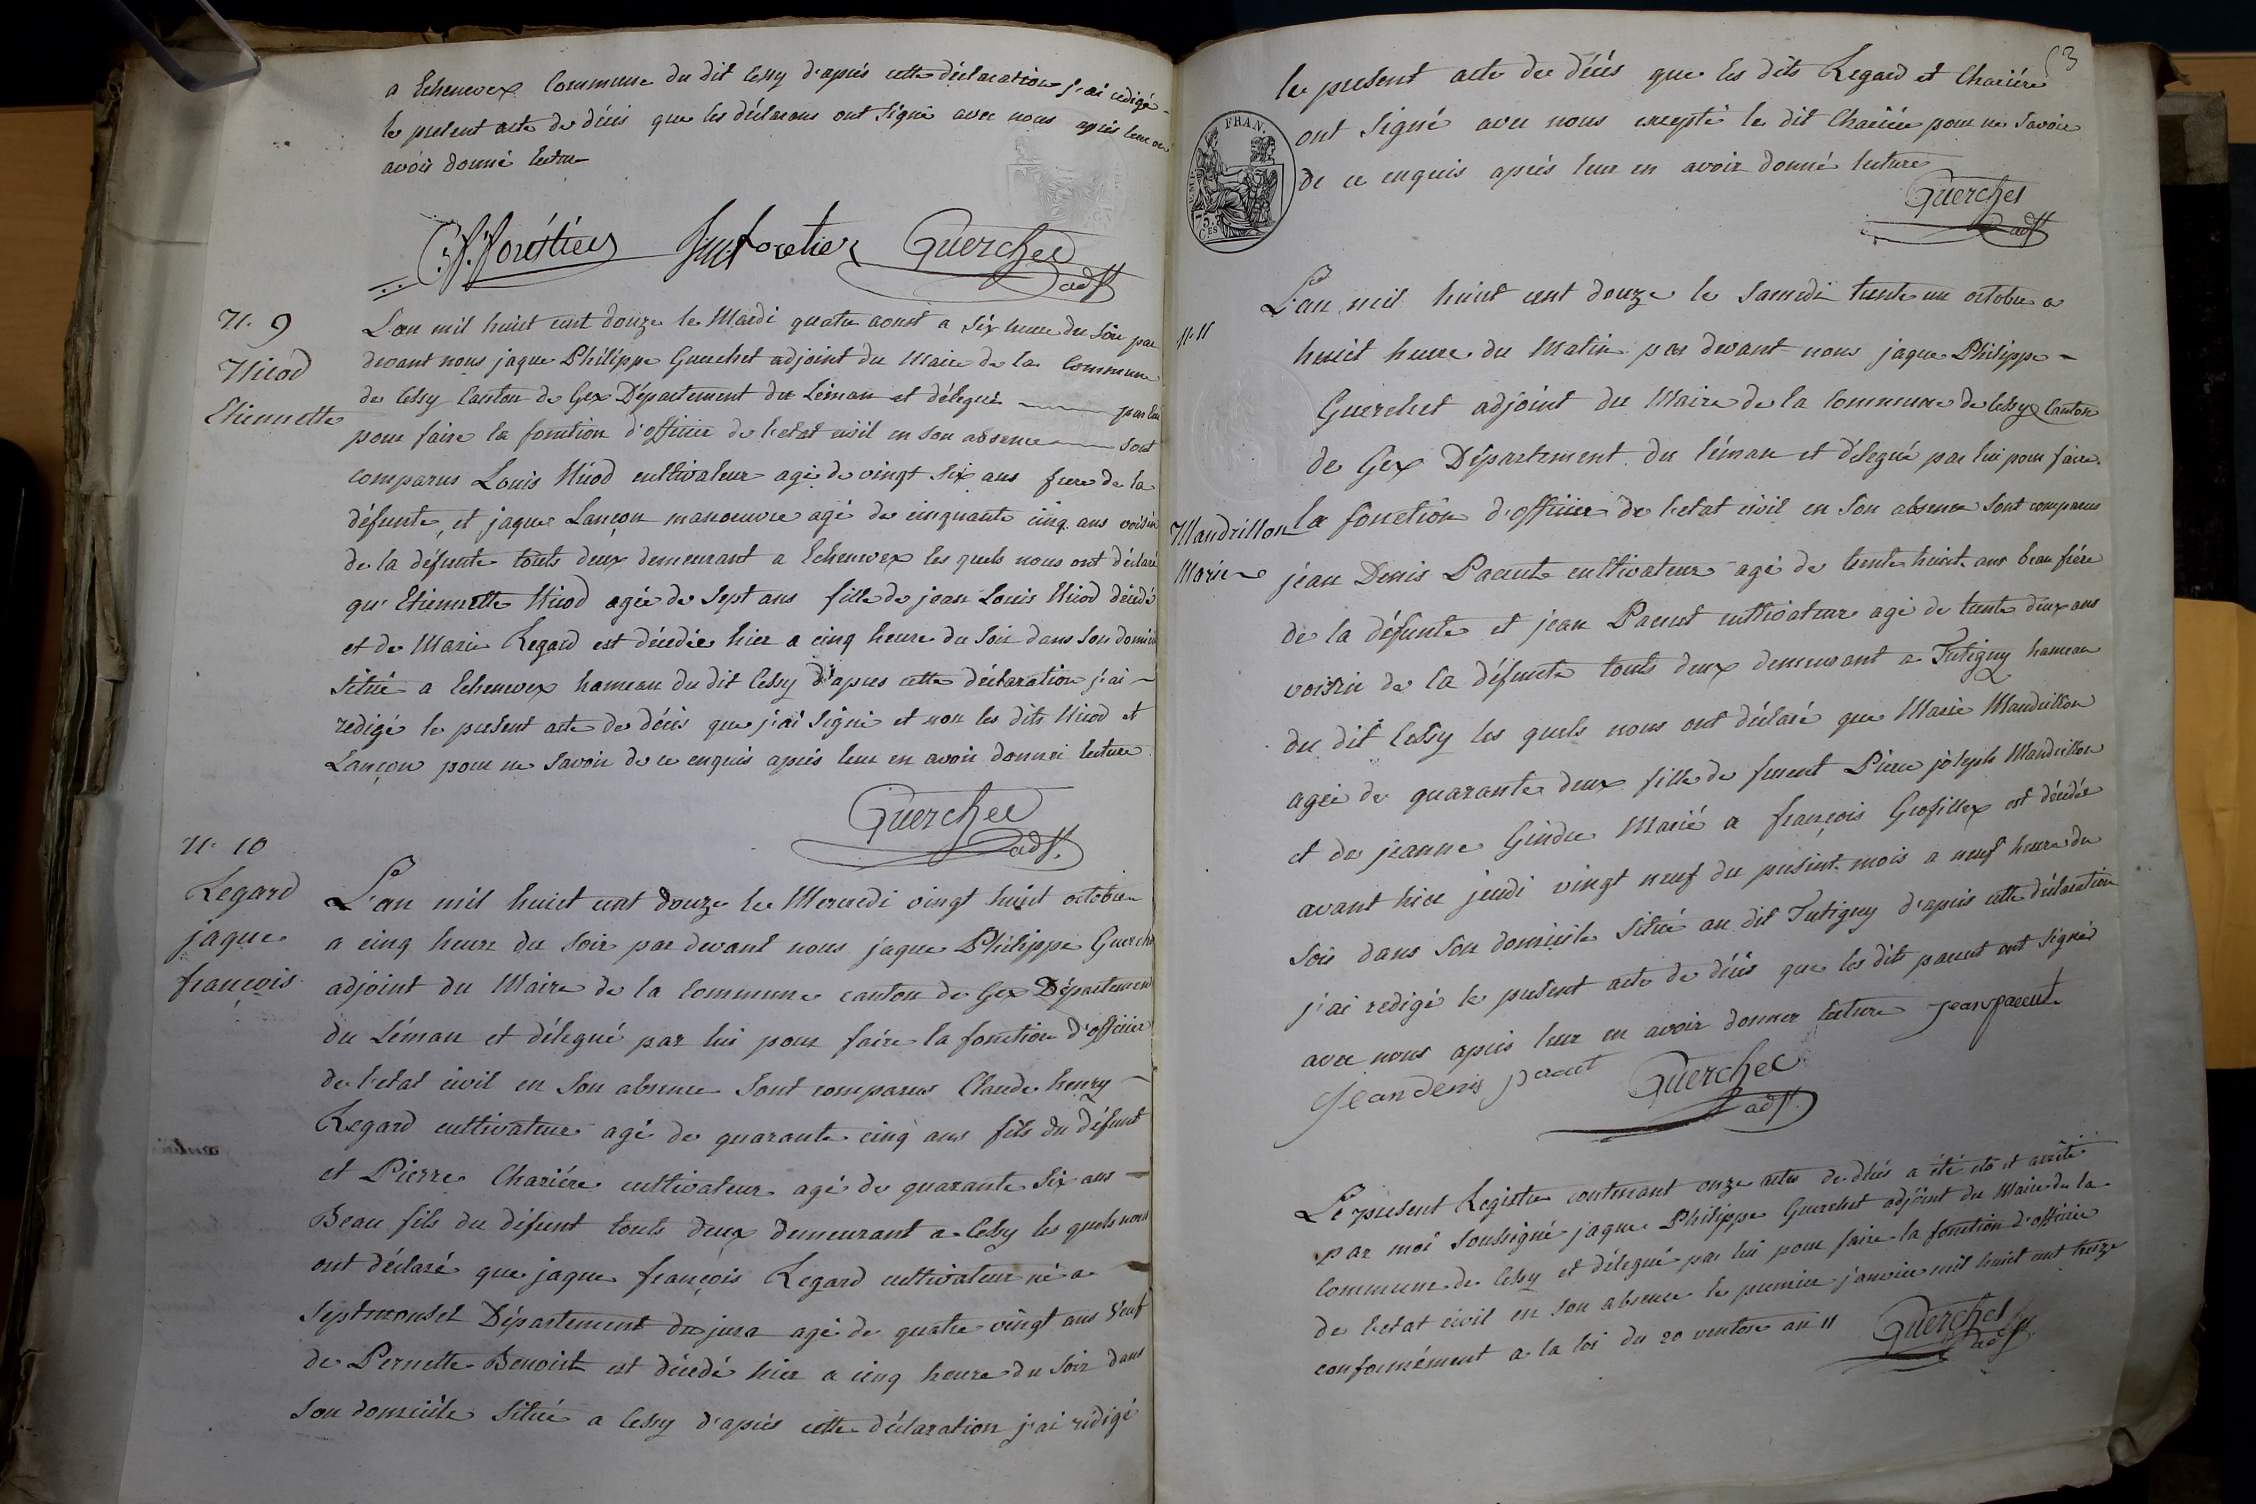 a Echenevex Commune du dit Cessy d'après cette déclaration j'ai redigé
le present acte de décès que les déclarans ont signé avec nous après leur en
avoir donné lecture
Guerchet
adjt
N. 9
Nicod
Etiennette
L'an mil huict cent douze le Mardi quatre aoust a six heure du soir par
devant nous jaque Philippe Guerchet adjoint du Maire de la Commune
de Cessy Canton de Gex Département du Léman et délegué par lui
pour faire la fonction d'officier de l'etat civil en son absence sont
comparus Louis Nicod cultivateur agé de vingt six ans frere de la
défunte, et jaque Lançon manoeuvre agé de cinquante cinq ans voisin
de la défunte touts deux demeurant a Echenevex les quels nous ont déclaré
qu' Etiennette Nicod agée de sept ans fille de jean Louis Nicod décédé
et de Marie Regard est décedée hier a cinq heure du soir dans son domicile
situé a Echenevex hameau du dit Cessy d'apres cette déclaration j'ai
redigé le present acte de décès que j'ai signé et non les dits Nicod et
Lançon pour ne savoir de ce enquis après leur en avoir donné lecture
Guerchet
adjt.
N. 10
Regard
jaque
françois
L'an mil huict cent douze le Mercredi vingt huict octobre
a cinq heure du soir par devant nous jaque Philippe Guerchet
adjoint du Maire de la Commune canton de Gex Département
du Léman et délegué par lui pour faire la fonction d'officier
de l'etat civil en son absence sont comparus Claude henry
Regard cultivateur agé de quarante cinq ans fils du défunt
et Pierre Chariére cultivateur agé de quarante six ans
Beau fils du défunt touts deux demeurant a Cessy les quels nous
ont déclaré que jaque françois Regard cultivateur né a
Septmonsel Département du jura agé de quatre vingt ans Veuf
de Pernette Benoist est décedé hier a cinq heure du soir dans
son domicile situé a Cessy d'après cette déclaration j'ai redigé
3
le present acte de décès que les dits Regard et Chariére
ont signé avec nous excepté le dit Chariére pour ne savoir
de ce enquis après leur en avoir donné lecture
FRAN.
75
CES
Guerchet
adjt
N. 11
Mandrillon
Marie
L'an mil huict cent douze le samedi trente un octobre a
huict heure du Matin par devant nous jaque Philippe
Guerchet adjoint du Maire de la Commune de Cessy Canton
de Gex Département du léman et délegué par lui pour faire
la fonction d'officier de l'etat civil en son absence sont comparus
jean Denis Pacaut cultivateur agé de trente huict ans beau frère
de la défunte et jean Pacaut cultivateur agé de trente deux ans
voisin de la défunte touts deux demeurant a Tutigny hameau
du dit Cessy les quels nous ont déclaré que Marie Mandrillon
agée de quarante deux fille de furent Pierre joseph Mandrillon
et de jeanne Gindre Marié a françois Grosfillex est décédée
avant hier jeudi vingt neuf du present mois a neuf heure du
soir dans son domicile situé au dit Tutigny d'après cette déclaration
j'ai redigé le present acte de décès que les dits pacaut ont signé
avec nous après leur en avoir donner lecture jean pacaut
jean denis pacaut Guerchet
adjt.
Le present Registre contenant onze actes de décès a été clô et arrêté
par moi soussigné jaque Philippe Guerchet adjoint du Maire de la
Commune de Cessy et délegué par lui pour faire la fonction d'officier
de l'etat civil en son absence le premier janvier mil huict cent treize
conformément a la loi du 20 ventose an 11 Guerchet
adjt